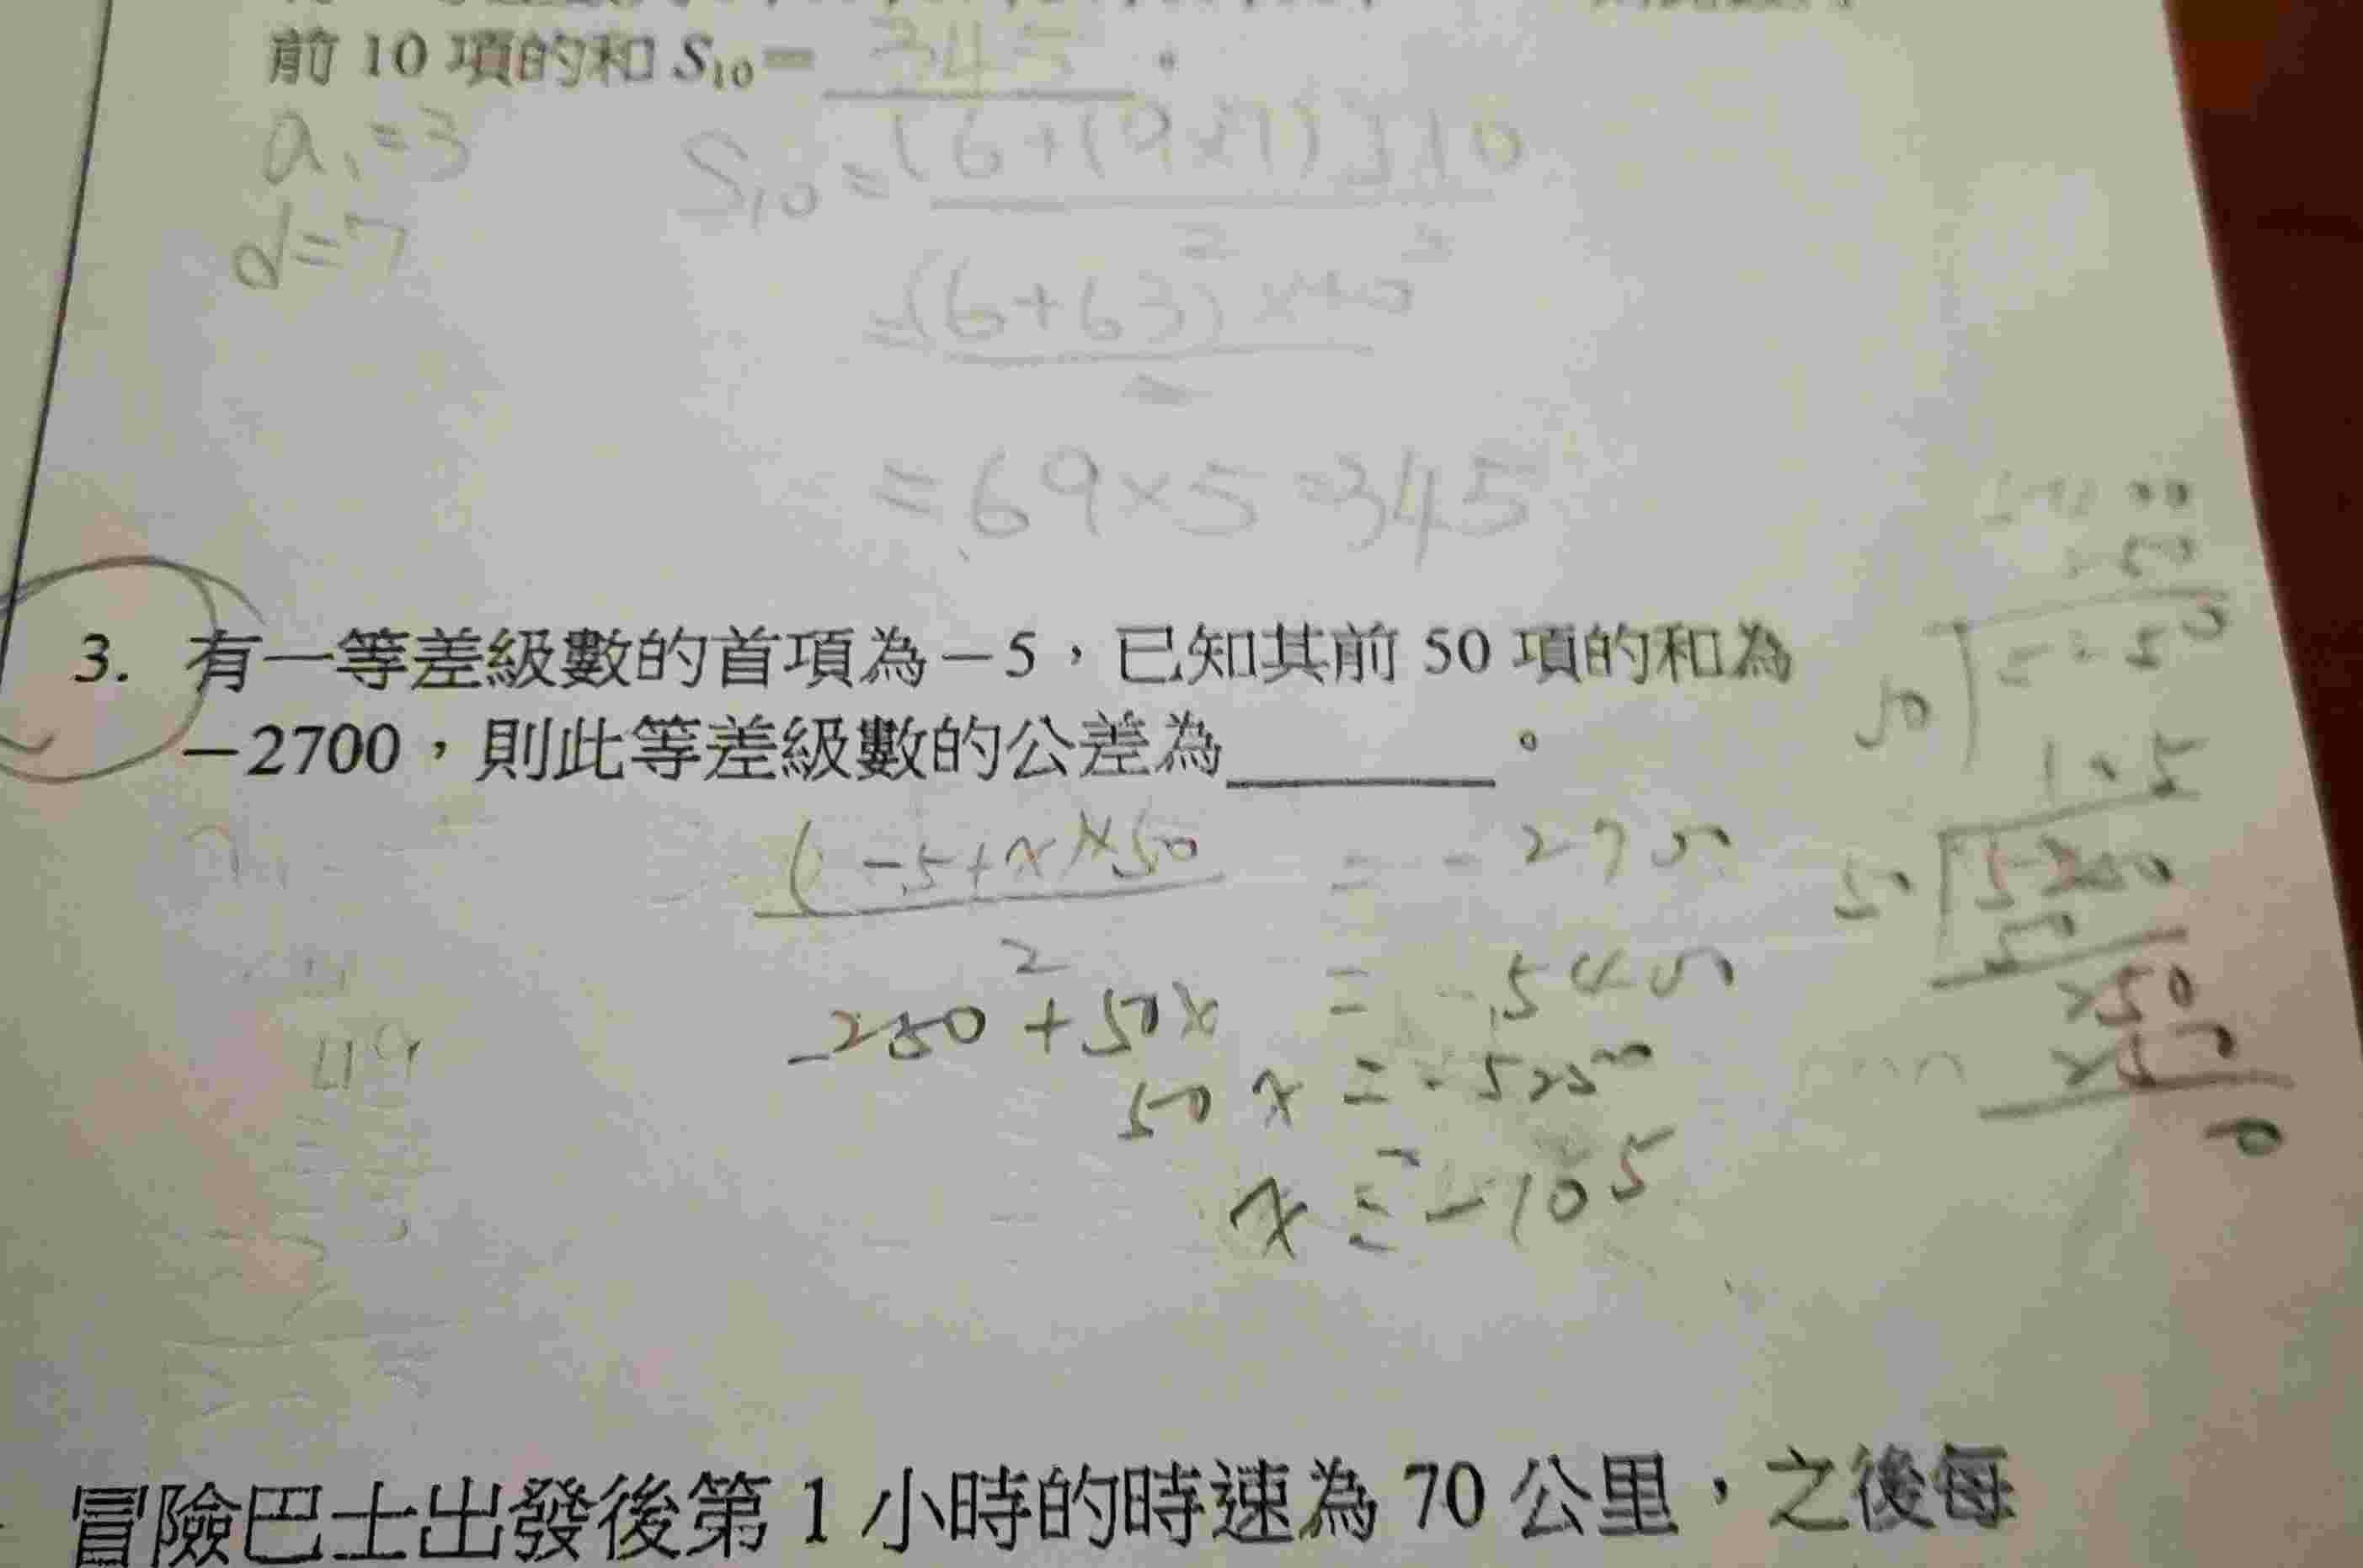 前 10 項的和 S₁₀= 345 。
a₁=3
S₁₀=[6+(9×7)]10
2
d=7
=(6+63)×10
2
=69×5=345
3. 有一等差級數的首項為-5,已知其前 50 項的和為
-2700,則此等差級數的公差為______。
(-5+x)×50 = -2700
2
-250+50x = -5400
50x = -5250
x = -105
49
50
5250
105
50
5250
50
250
250
0
冒險巴士出發後第 1 小時的時速為 70 公里,之後每